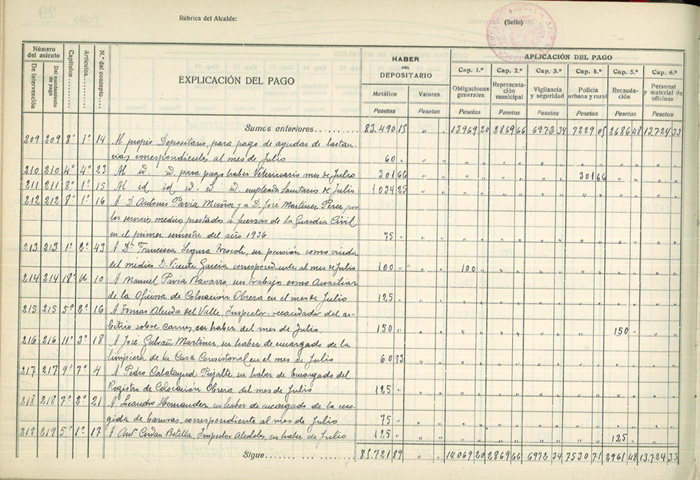 Rúbrica del Alcalde:
(Sello)
Número del asiento
De intervención
Del mandamiento de pago
Capítulos
Artículos
N.º del concepto
EXPLICACIÓN DEL PAGO
HABER DEL DEPOSITARIO
Metálico
Valores
Pesetas
Pesetas
APLICACIÓN DEL PAGO
Cap. 1.º Obligaciones generales Pesetas
Cap. 2.º Representación municipal Pesetas
Cap. 3.º Vigilancia y seguridad Pesetas
Cap. 4.º Policía urbana y rural Pesetas
Cap. 5.º Recaudación Pesetas
Cap. 6.º Personal y material de oficinas Pesetas
Sumas anteriores 83.490 15 " " 13969 20 2869 66 6972 34 7229 05 2686 48 13.724 33
209 209 8º 1º 14 Al propio Depositario, para pago de ayudas de lactancias correspondientes al mes de Julio 60 "
210 210 4º 4º 23 Al id. id. para pago haber Veterinario mes de Julio 301 66 301 66
211 211 8º 1º 15 Al id. id. id. id. empleados Sanitarios de Julio 1034 25
212 212 8º 1º 16 A D. Antonio Pavia Muñoz y a D. José Martinez Perez por
los servicios medicos prestados a fuerzas de la Guardia Civil
en el primer semestre del año 1936 75 "
213 213 1º 2º 43 A Dª Francisca Segura, su pension como viuda
del médico D. Vicente Garcia correspondiente al mes de Julio 100 " 100 "
214 214 18º 10 A Manuel Pavia Navarro, su trabajo como Auxiliar
de la Oficina de Colocación Obrera en el mes de Julio 125 "
215 215 5º 2º 16 A Tomás Alveda del Valle Inspector-recaudador del arbitrio
sobre carnes, su haber del mes de Julio 150 " 150 "
216 216 11º 3º 18 A José Galvañ Martinez, su haber de encargado de la
limpieza de la Casa Consistorial en el mes de Julio 60 83
217 217 9º 7º 4 A Pedro Calatayud, su haber de Encargado del
Registro de Colocación Obrera del mes de Julio 125 "
218 218 7º 2º 21 A Leandro Hernandez, su haber de encargado de la recogida
de basuras, correspondiente al mes de Julio 75 "
219 219 5º 1º A Antº Cerdan Botella, Inspector Arbitrios, su haber de Julio 125 " 125 "
Sigue 85.721 89 " " 14069 20 2869 66 6972 34 7530 71 2961 48 13.724 33